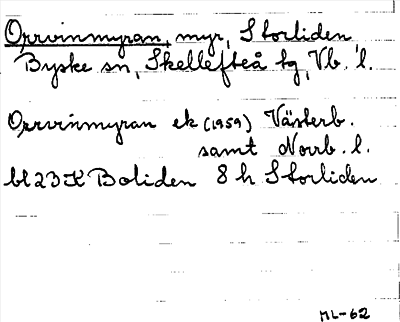 Orrvinmyran, myr, Storliden
Byske sn, Skellefteå tg, Vb. l.
Orrvinmyran ek (1959) Västerb.
samt Norrb. l.
bl 23 K Boliden 8 h Storliden
ML-62